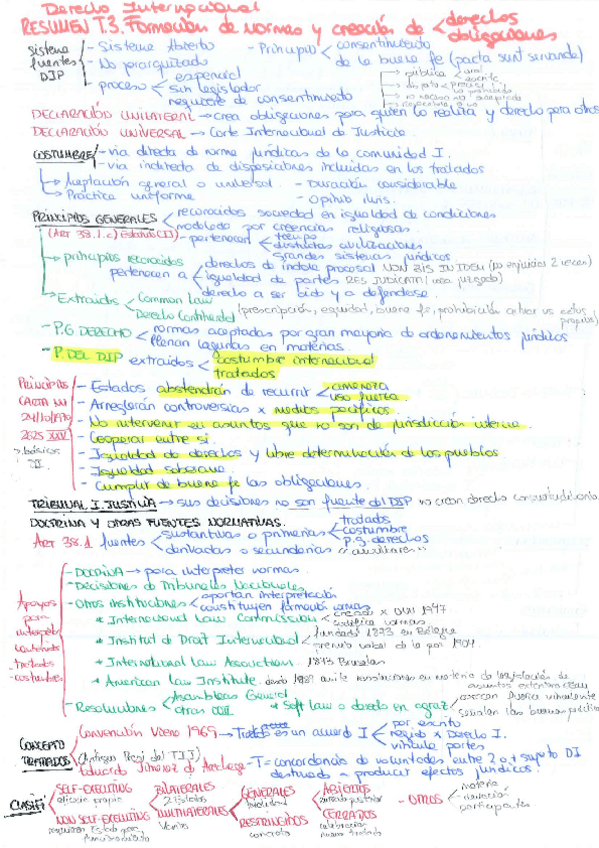 Derecho Internacional
RESUMEN T.3. Formación de normas y creación de < derechos
obligaciones
sistema fuentes DIP
- Sistema Abierto
- No jerarquizado
- proceso < especial
sin legislador
requiere de consentimiento
- Principio < consentimiento
de la buena fe (pacta sunt servanda)
pública
oral
escrita
DECLARACIÓN UNILATERAL → crea obligaciones para quien la realiza y derecho para otros
DECLARACIÓN UNIVERSAL → Corte Internacional de Justicia
COSTUMBRE
- via directa de norma jurídicas de la comunidad I.
- via indirecta de disposiciones incluidas en los tratados
→ Aceptación general o universal
- Duración considerable
→ Práctica uniforme
- Opinio iuris.
PRINCIPIOS GENERALES < reconocidos sociedad en igualdad de condiciones
modelado por creencias religiosas.
(Art 38.1.c) Estatuto CIJ)
- pertenecen < tiempo
distintas civilizaciones
grandes sistemas jurídicos
→ principios reconocidos pertenecen a
derechos de índole procesal NON BIS IN IDEM (no enjuicias 2 veces)
igualdad de partes RES JUDICATA / cosa juzgada
derecho a ser oido y a defenderse.
→ Extraidos < Common Law
Derecho Continental (prescripción, equidad, buena fe, prohibición actuar vs actos propios)
- P.G DERECHO < normas aceptadas por gran mayoría de ordenamientos jurídicos
llenan lagunas en materias.
- P. DEL DIP extraidos < costumbre internacional
tratados
Principios CARTA NU 24/10/1970 2625 XXV
básicos DI
- Estados abstendrán de recurrir < amenaza
uso fuerza.
- Arreglarán controversias x medios pacíficos.
- No intervenir en asuntos que no son de jurisdicción interna
- Cooperar entre si.
- Igualdad de derechos y libre determinación de los pueblos
- Igualdad soberana.
- Cumplir de buena fe las obligaciones.
TRIBUNAL I. JUSTICIA → sus decisiones no son fuente del DIP no crean derecho consuetudinario
DOCTRINA Y OTRAS FUENTES NORMATIVAS.
Art 38.1 fuentes < sustantivas o primarias < tratados
costumbre
P.g. derechos
derivadas o secundarias "auxiliares"
Apoyos para interpretar contenidos tratados costumbres
- DOCTRINA → para interpretar normas.
- Decisiones de Tribunales Nacionales
- Otras instituciones < aportan interpretación
constituyen formación normas
* International Law Commission < creada x ONU 1947
codifica normas
* Institut de Droit International < fundado 1873 en Bélgica
premio nobel de la paz 1904
* International Law Association. 1873 Bruselas
* American Law Institute. desde 1923 emite resoluciones en materia de legislación de asuntos exteriores EEUU
- Resoluciones < Asamblea General
otras OOII
* Soft law o derecho en agraz < carecen fuerza vinculante
señalan las buenas prácticas
CONCEPTO TRATADOS
Convención Viena 1969 → Tratado es un acuerdo I < por escrito
regido x Derecho I.
vincula partes
(Antiguo Presi del TIJ)
Eduardo Jimenez de Aréchaga - T = concordancia de voluntades entre 2 o + sujeto DI
destinado a producir efectos jurídicos.
CLASIF.
SELF-EXECUTING
eficacia propia
NON SELF-EXECUTING
BILATERALES
2 Estados
MULTILATERALES
Varios
GENERALES
RESTRINGIDOS
concreto
ABIERTOS
entrada posterior
CERRADOS
nuevo tratado
- OTROS < materia
duración
participantes